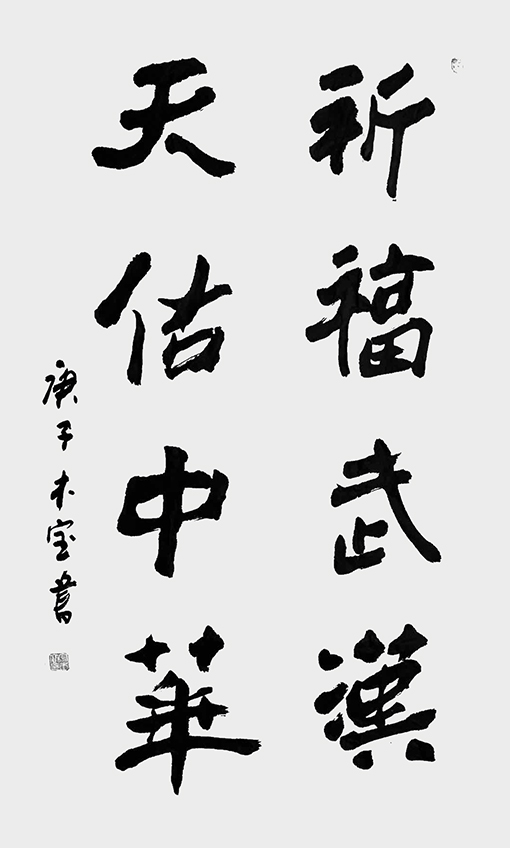 祈福武漢
天佑中華
庚子木宝書